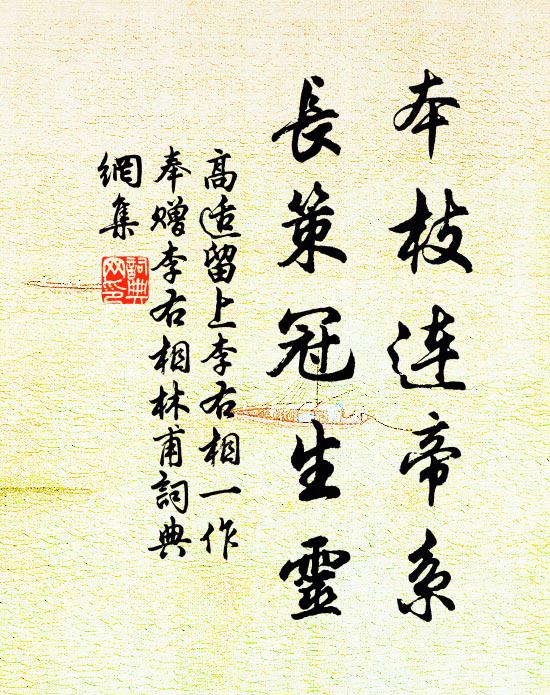 本枝连帝系
長策冠生靈
高适留上李右相一作
奉赠李右相林甫詞典
網集
詞典
网印